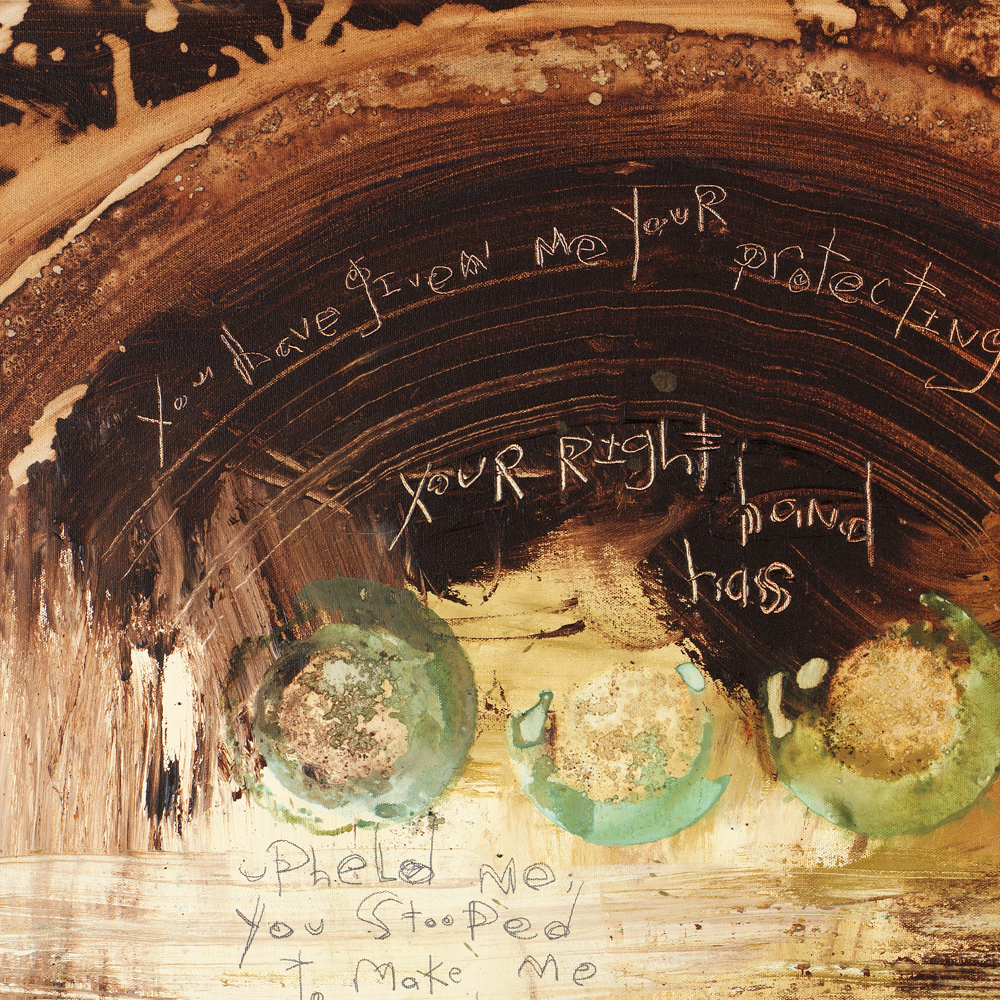 You have given me your protecting
your Right hand
hass
upheld me;
you stooped
to make me